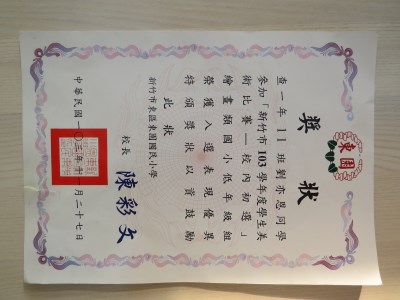 獎狀
東園
查一年11班劉亦恩同學
參加「新竹市103學年度學生美
術比賽—校內初選」
繪畫類國小低年級組
榮獲入選表現優異
特頒獎狀以資鼓勵
此狀
新竹市東區東園國民小學
校長 陳彩文
中華民國一〇三年十一月二十七日